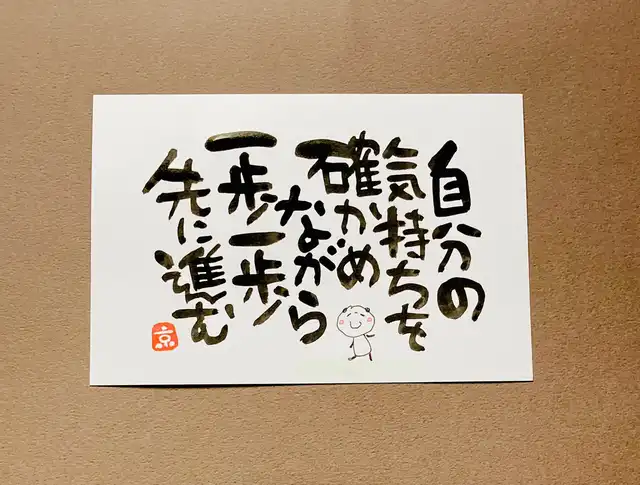 自分の
気持ちを
確かめ
ながら
一歩一歩
先に進む
京